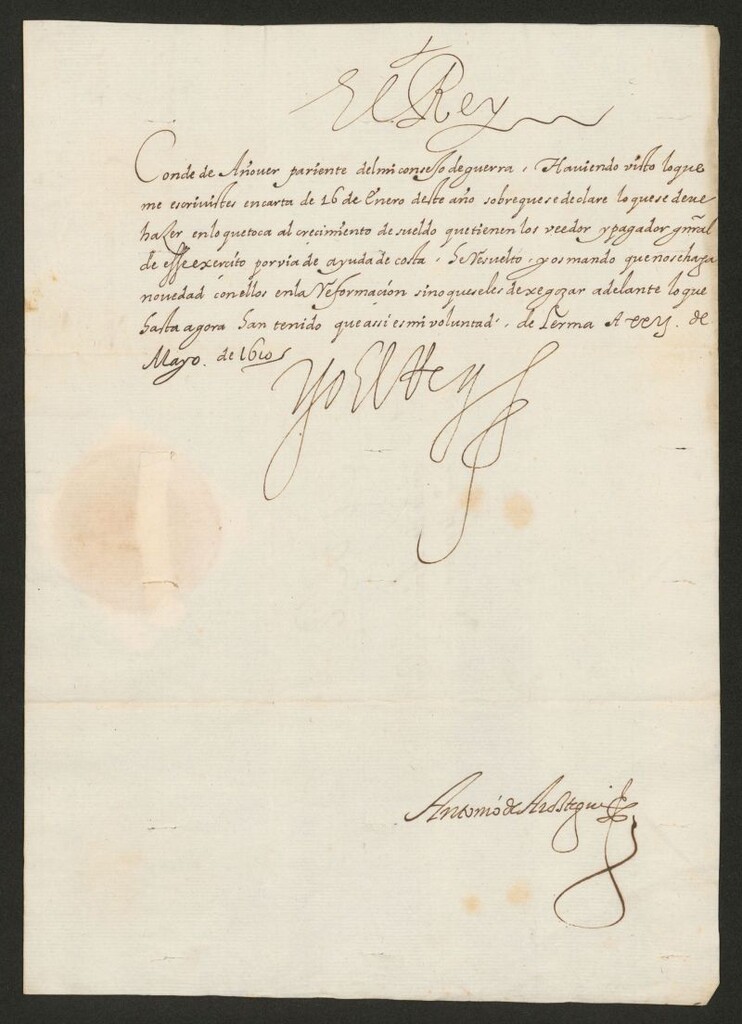 El Rey
Conde de Añover pariente del mi consejo de guerra, Haviendo visto lo que
me escrivistes en carta de 16 de Enero deste año sobre que se declare lo que se deve
hazer en lo que toca al crecimiento de sueldo que tienen los veedor y pagador gñral
de esse exercito por via de ayuda de costa, he Resuelto, y os mando que no se haga
novedad con ellos en la Reformación sino que se les dexe gozar adelante lo que
hasta agora han tenido que assi es mi voluntad, de Lerma A de
Mayo. de 1610
Yo El Rey
Antonio de Arostegui